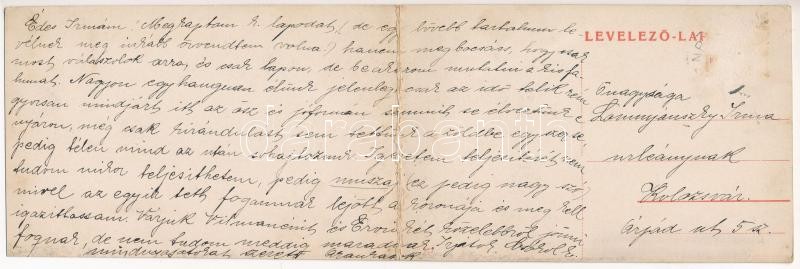 Édes Irmám! Megkaptam k. lapodat (de egy bővebb tartalmu le-
vélnek még inkább örvendtem volna) hanem megbocsáss, hogy csak
most válaszolok arra, és csak lapon, de be akarom mutatni a
Nagyon egyhanguan élünk jelenleg csak az idő telik
gyorsan mindjárt itt az ősz és jóformán semmit se élveztünk e
nyáron, még csak kirándulást sem tettünk a zöldbe egyszer se
pedig télen mind az után sohajtoztunk. Igéretem teljesitését nem
tudom mikor teljesithetem, pedig muszaj (ez pedig nagy szó)
mivel az egyik tett fogamnak lejött a koronája és meg kell
igazittassam. Várjuk Vilmáncinit és közelebbről jönni
fognak, de nem tudom meddig maradnak.
mindnyájatokat szerető Arankátok
LEVELEZŐ-LAP
Őnagysága
Irma
urleánynak
Kolozsvár.
Árpád ut 5 sz.
darabanth